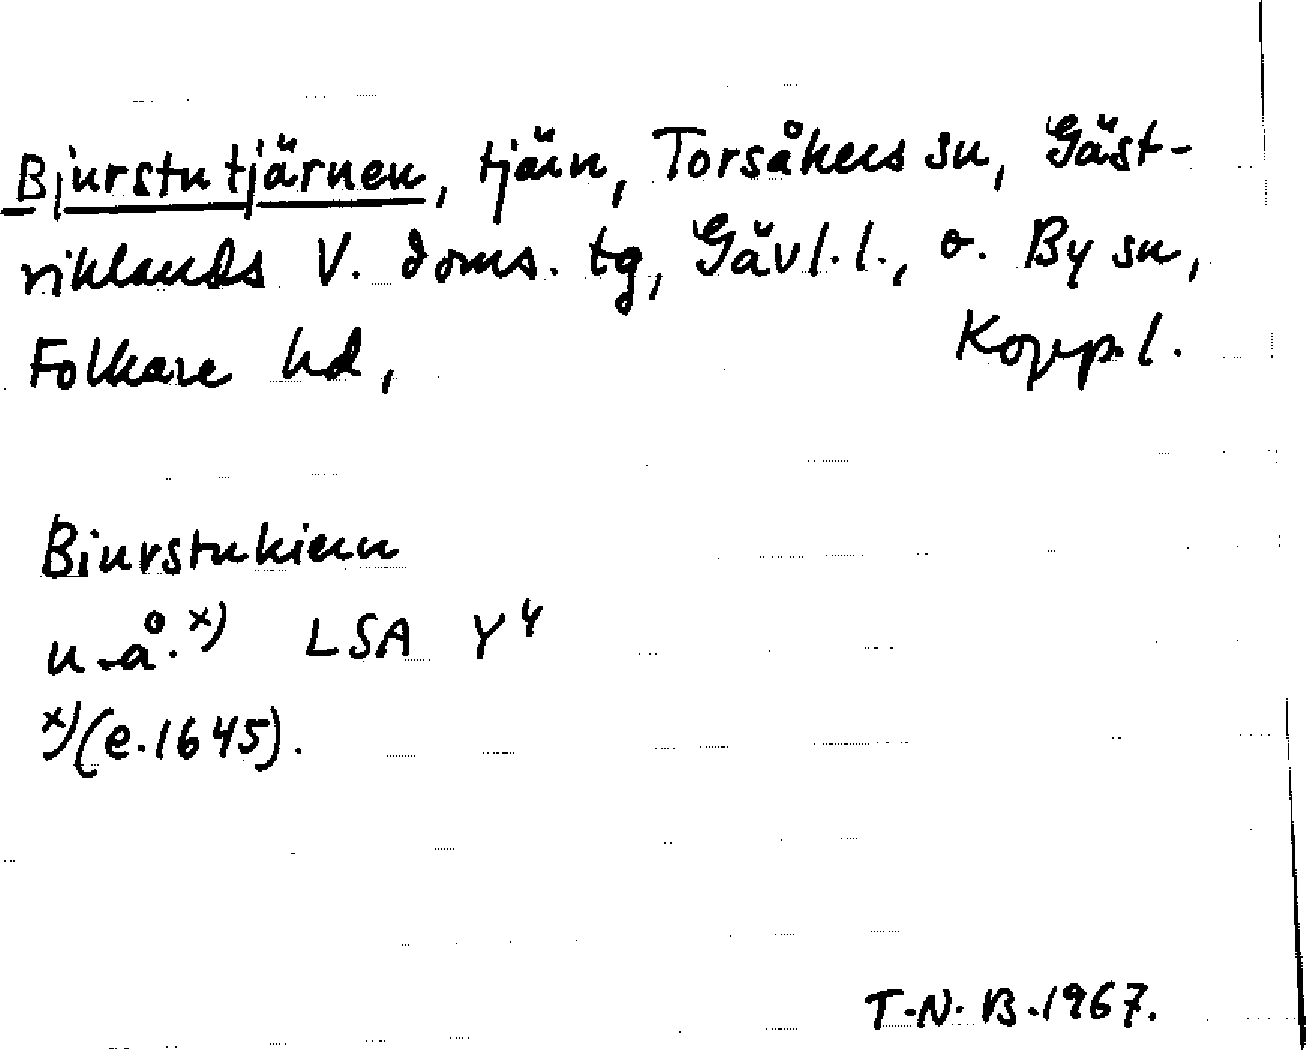 Bjurstutjärnen, tjärn, Torsåkers sn, Gäst-
riklands V. doms. tg, Gävl. l., o. By sn,
Folkare hd, Kopp. l.
Biurstukienn
u.å.x) LSA Y4
x)(e.1645).
T.N.B.1967.